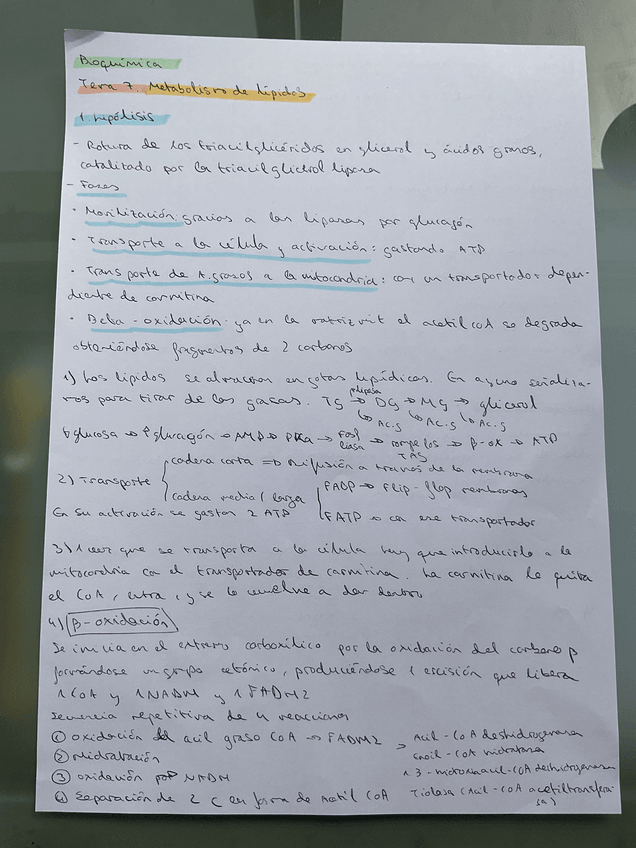 Bioquímica
Tema 7. Metabolismo de lípidos
1. Lipólisis
- Rotura de los triacilglicéridos en glicerol y ácidos grasos,
catalizado por la triacilglicerol lipasa
- Fases
· Movilización: gracias a las lipasas por glucagón
· Transporte a la célula y activación: gastando ATP
· Transporte de A. grasos a la mitocondria: con un transportador depen-
diente de carnitina
· Beta-oxidación: ya en la matriz mit el acetil coA se degrada
obteniéndose fragmentos de 2 carbonos
1) Los lípidos se almacenan en gotas lipídicas. En ayuno señaliza-
mos para tirar de las grasas. TG → DG → MG → glicerol
lipasa
↳ Ac.g ↳ Ac.g ↳ Ac.g
↓glucosa → ↑glucagón → AMP → PKA → → rompe los TAG → β-ox → ATP
2) Transporte
cadena corta => Difusión a través de la membrana
cadena media/larga
FABP → Flip-flop membranas
FATP → con ese transportador
En su activación se gastan 2 ATP
3) 1 vez que se transporta a la célula hay que introducirlo a la
mitocondria con el transportador de carnitina. La carnitina le quita
el CoA, entra, y se lo vuelve a dar dentro
4) β-oxidación
Se inicia en el extremo carboxílico por la oxidación del carbono β
formándose un grupo cetónico, produciéndose 1 escisión que libera
1 CoA y 1 NADH y 1 FADH2
Secuencia repetitiva de 4 reacciones
① oxidación del acil graso CoA → FADH2 > Acil-CoA deshidrogenasa
② Hidratación Enoil-CoA hidratasa
③ oxidación por NADH 3-hidroxiacil-CoA deshidrogenasa
④ Separación de 2 C en forma de Acetil CoA Tiolasa (Acil-CoA acetiltransfera-
sa)